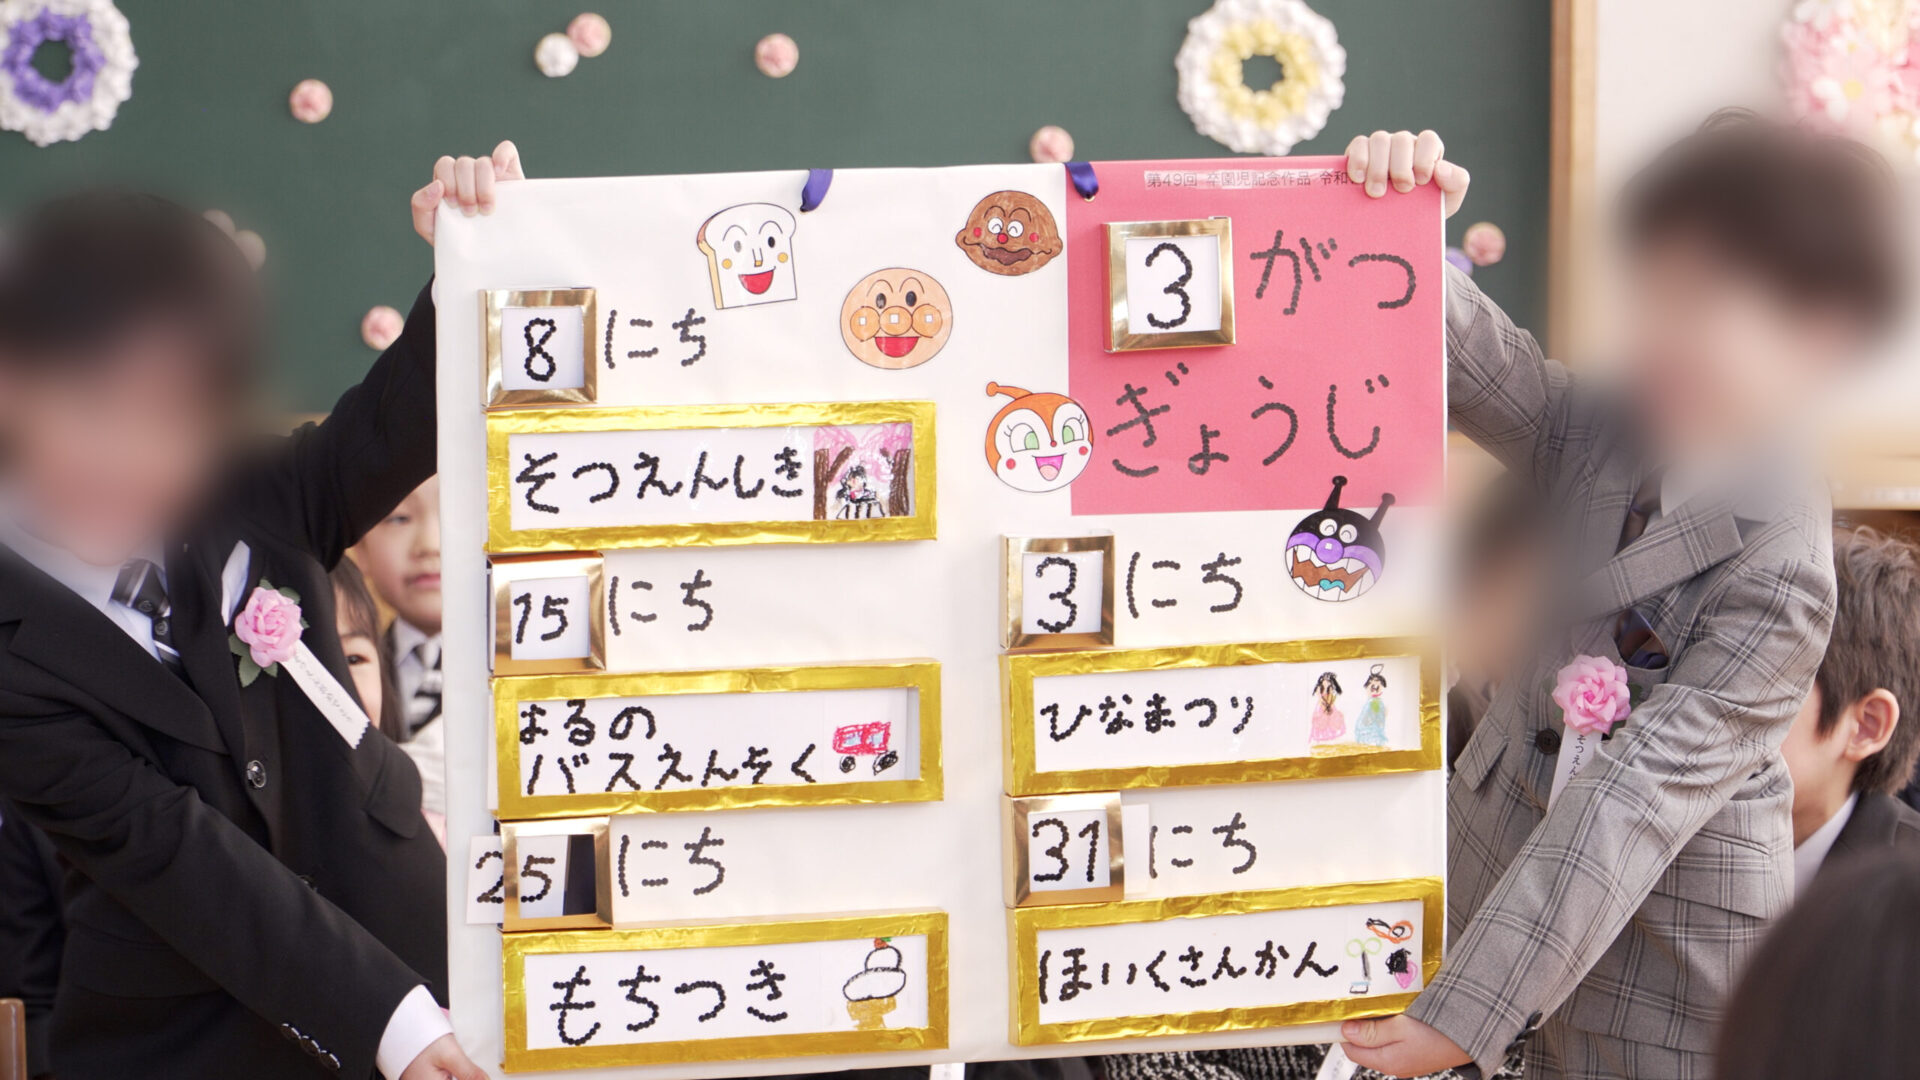 第49回 卒園児記念作品 令和
3 がつ
ぎょうじ
3 にち
ひなまつり
31 にち
ほいくさんかん
8 にち
そつえんしき
15 にち
まるの
バスえんそく
25 にち
もちつき
そつえん